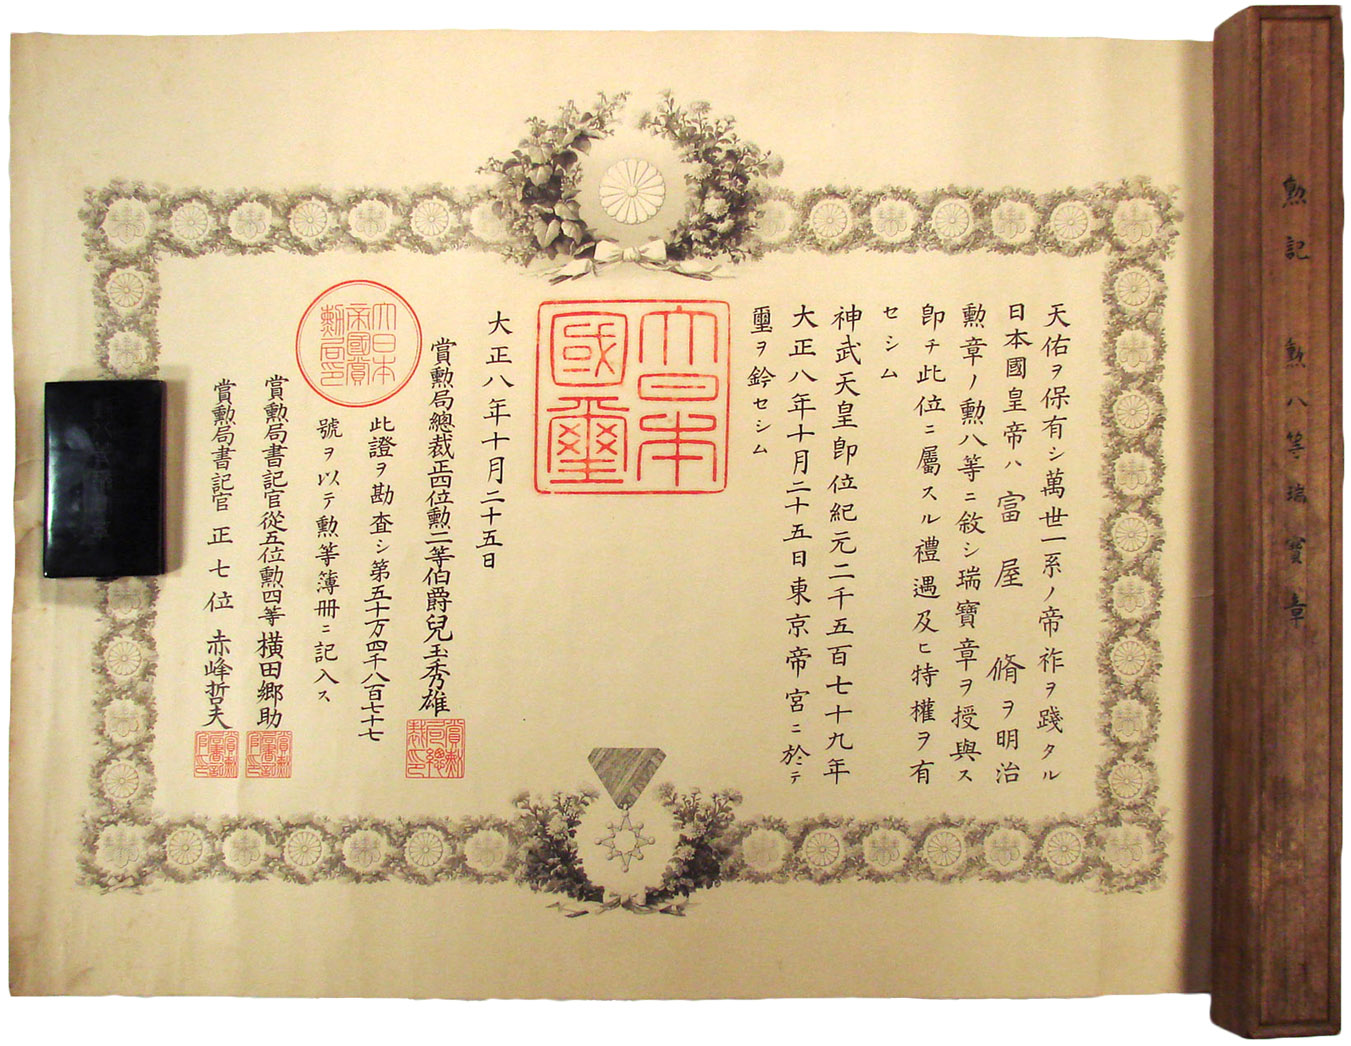 天佑ヲ保有シ萬世一系ノ帝祚ヲ踐タル
日本國皇帝ハ富屋脩ヲ明治
勲章ノ勲八等ニ敘シ瑞寶章ヲ授與ス
卽チ此位ニ屬スル禮遇及ヒ特權ヲ有
セシム
神武天皇卽位紀元二千五百七十九年
大正八年十月二十五日東京帝宮ニ於テ
璽ヲ鈐セシム
大日本
國璽
大正八年十月二十五日
賞勲局總裁正四位勲二等伯爵兒玉秀雄
賞勲局總裁印
此證ヲ勘査シ第五十万四千八百七十七
號ヲ以テ勲等簿册ニ記入ス
大日本
帝國賞
勲局印
賞勲局書記官從五位勲四等橫田郷助
賞勲局書記官印
賞勲局書記官正七位赤峰哲夫
賞勲局書記官印
勲記 勲八等瑞寶章